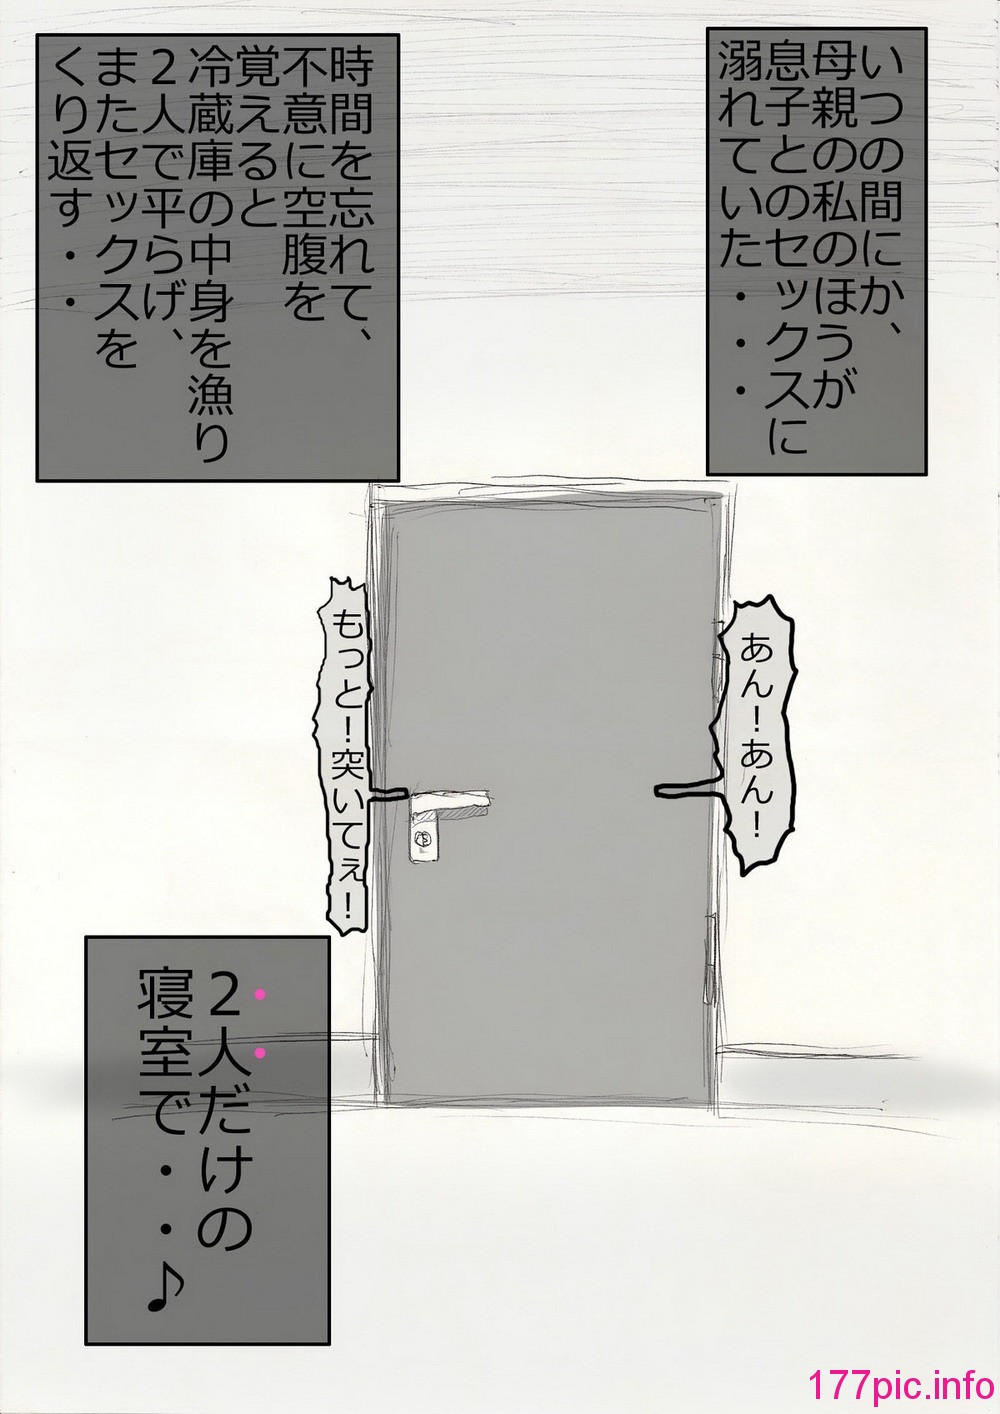 いつの間にか、
母親の私のほうが
息子とのセックスに
溺れていた・・・
時間を忘れて、
不意に空腹を
覚えると
冷蔵庫の中身を漁り
２人で平らげ、
またセックスを
くり返す・・
あん！あん！
もっと！突いてぇ！
２人だけの
寝室で・・♪
177pic.info